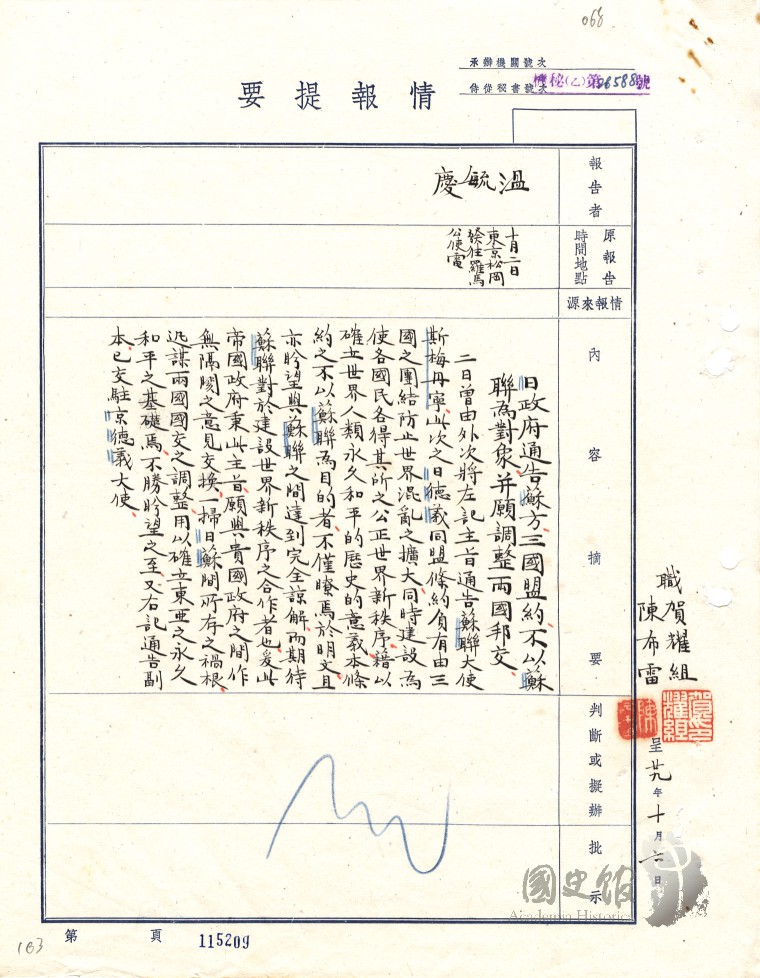 068
承辦機關號次
侍從秘書號次
機秘(乙)第06588號
情報提要
報告者
溫毓慶
原報告時間地點
十月二日
東京松岡
發往羅馬
公使電
情報來源
內容摘要
日政府通告蘇方三國盟約不以蘇
聯為對象并願調整兩國邦交
二日曾由外次將左記主旨通告蘇聯大使
斯梅丹寧此次之日德義同盟條約負有由三
國之團結防止世界混亂之擴大同時建設為
使各國民各得其所之公正世界新秩序藉以
確立世界人類永久和平的歷史的意義本條
約之不以蘇聯為目的者不僅瞭焉於明文且
亦盼望與蘇聯之間達到完全諒解而期待
蘇聯對於建設世界新秩序之合作者也爰此
帝國政府秉此主旨願與貴國政府之間作
無隔閡之意見交換一掃日蘇間所存之禍根
迅謀兩國國交之調整用以確立東亞之永久
和平之基礎焉不勝盼望之至又右記通告副
本已交駐京德義大使
判斷或擬辦
批示
職賀耀組
陳布雷
呈廿九年十月六日
國史館
Academia Historica
第 頁
115209
103